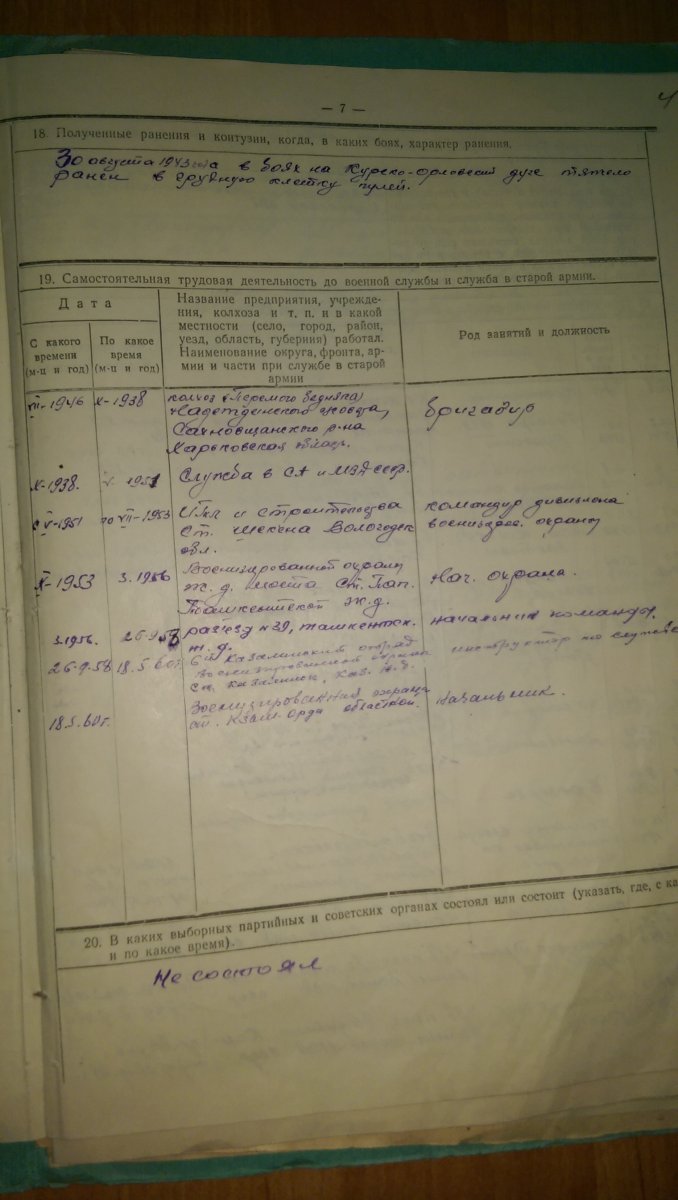 — 7 —
18. Полученные ранения и контузии, когда, в каких боях, характер ранения.
30 августа 1943 года в боях на Курско-Орловской дуге тяжело
ранен в грудную клетку пулей.
19. Самостоятельная трудовая деятельность до военной службы и служба в старой армии.
Дата
С какого
времени
(м-ц и год)
По какое
время
(м-ц и год)
Название предприятия, учрежде-
ния, колхоза и т. п. и в какой
местности (село, город, район,
уезд, область, губерния) работал.
Наименование округа, фронта, ар-
мии и части при службе в старой
армии
Род занятий и должность
X-1938
колхоз
Сахновщанского р-на
Харьковская область.
бригадир
X-1938.
V 1951
Служба в СА и МВД ссср.
с V-1951
по VII-1953
и строительства
ст. Шексна Вологодск
обл.
командир дивизиона
охраны
X-1953
3.1956
охраны
ж. д. моста ст.
Ташкентской ж.д.
Нач. охрана.
3.1956.
26.9.58
разъезд №39, ташкентск.
ж. д.
начальник команды.
26.9.58
18.5.60г.
6й Казалинский отряд
военизированной охраны
ст. Казалинск, Каз. ж.д.
инструктор по службе
18.5.60г.
охрана
ст. Кзыл-Орда
20. В каких выборных партийных и советских органах состоял или состоит (указать, где, с ка
и по какое время).
Не состоял